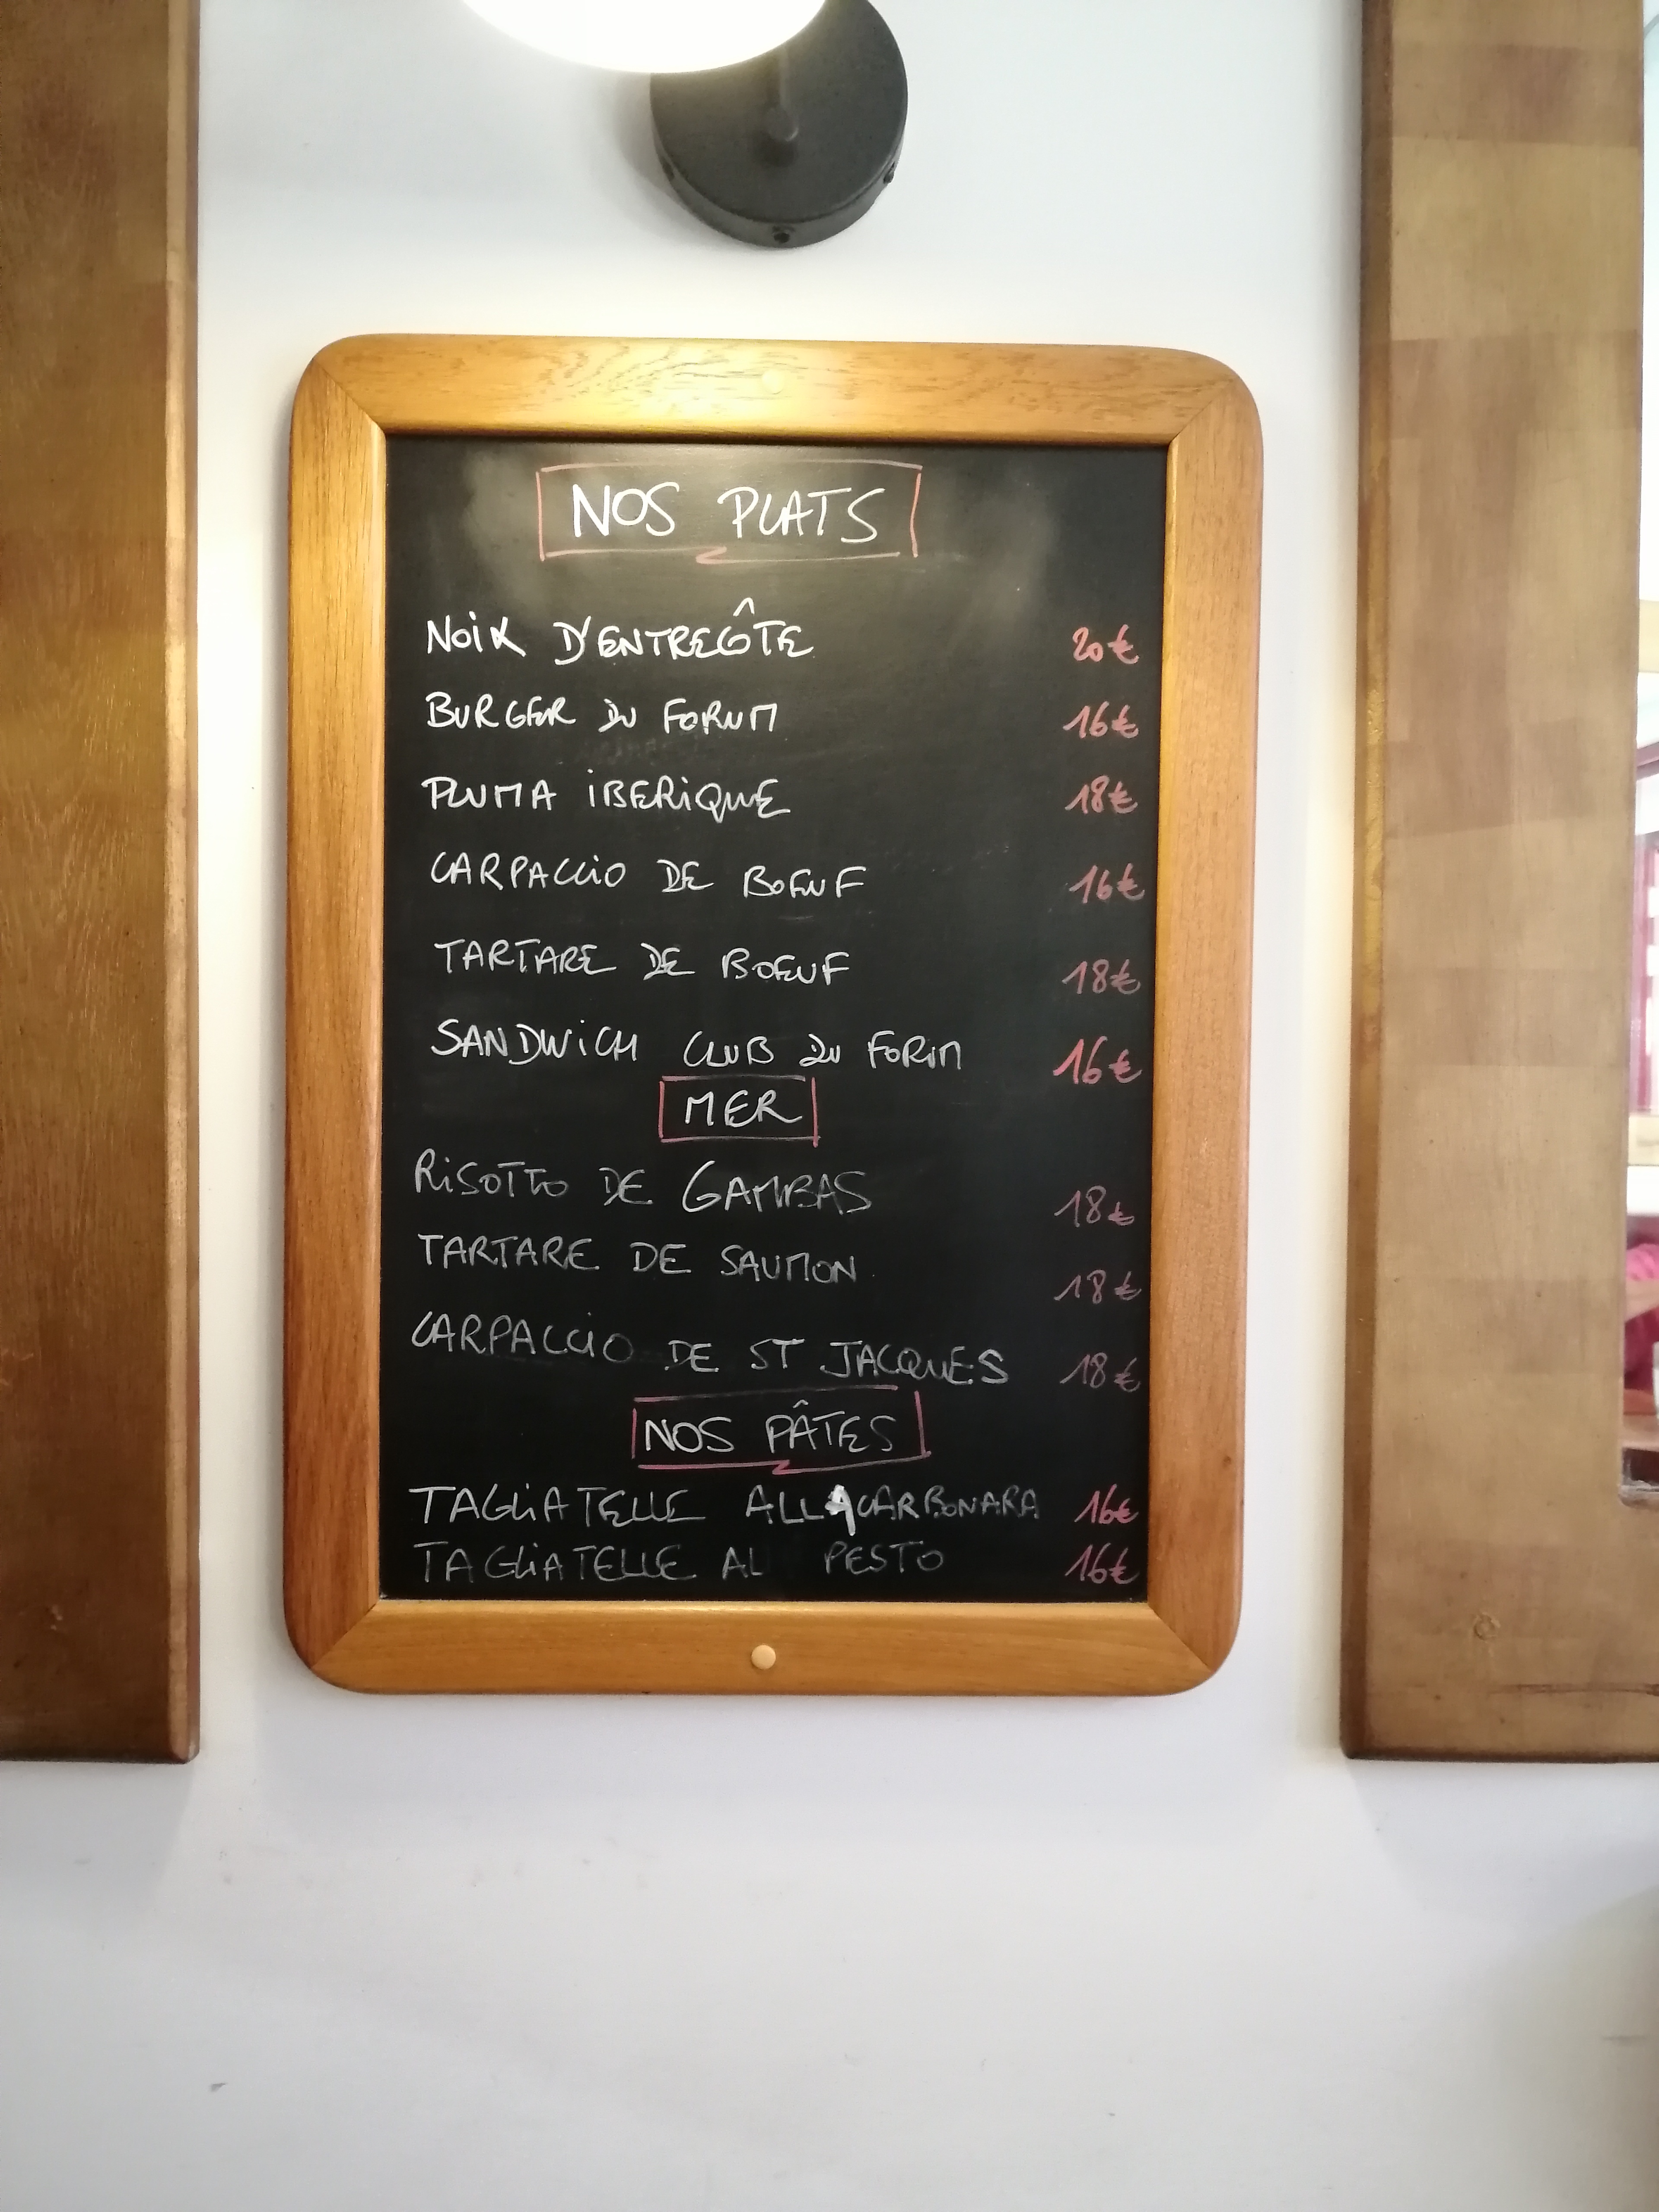 NOS PLATS
NOIX D'ENTRECÔTE 20€
BURGER DU FORUM 16€
PLUMA IBERIQUE 18€
CARPACCIO DE BOEUF 16€
TARTARE DE BOEUF 18€
SANDWICH CLUB DU FORUM 16€
MER
RISOTTO DE GAMBAS 18€
TARTARE DE SAUMON 18€
CARPACCIO DE ST JACQUES 18€
NOS PÂTES
TAGLIATELLE ALLA CARBONARA 16€
TAGLIATELLE AL PESTO 16€